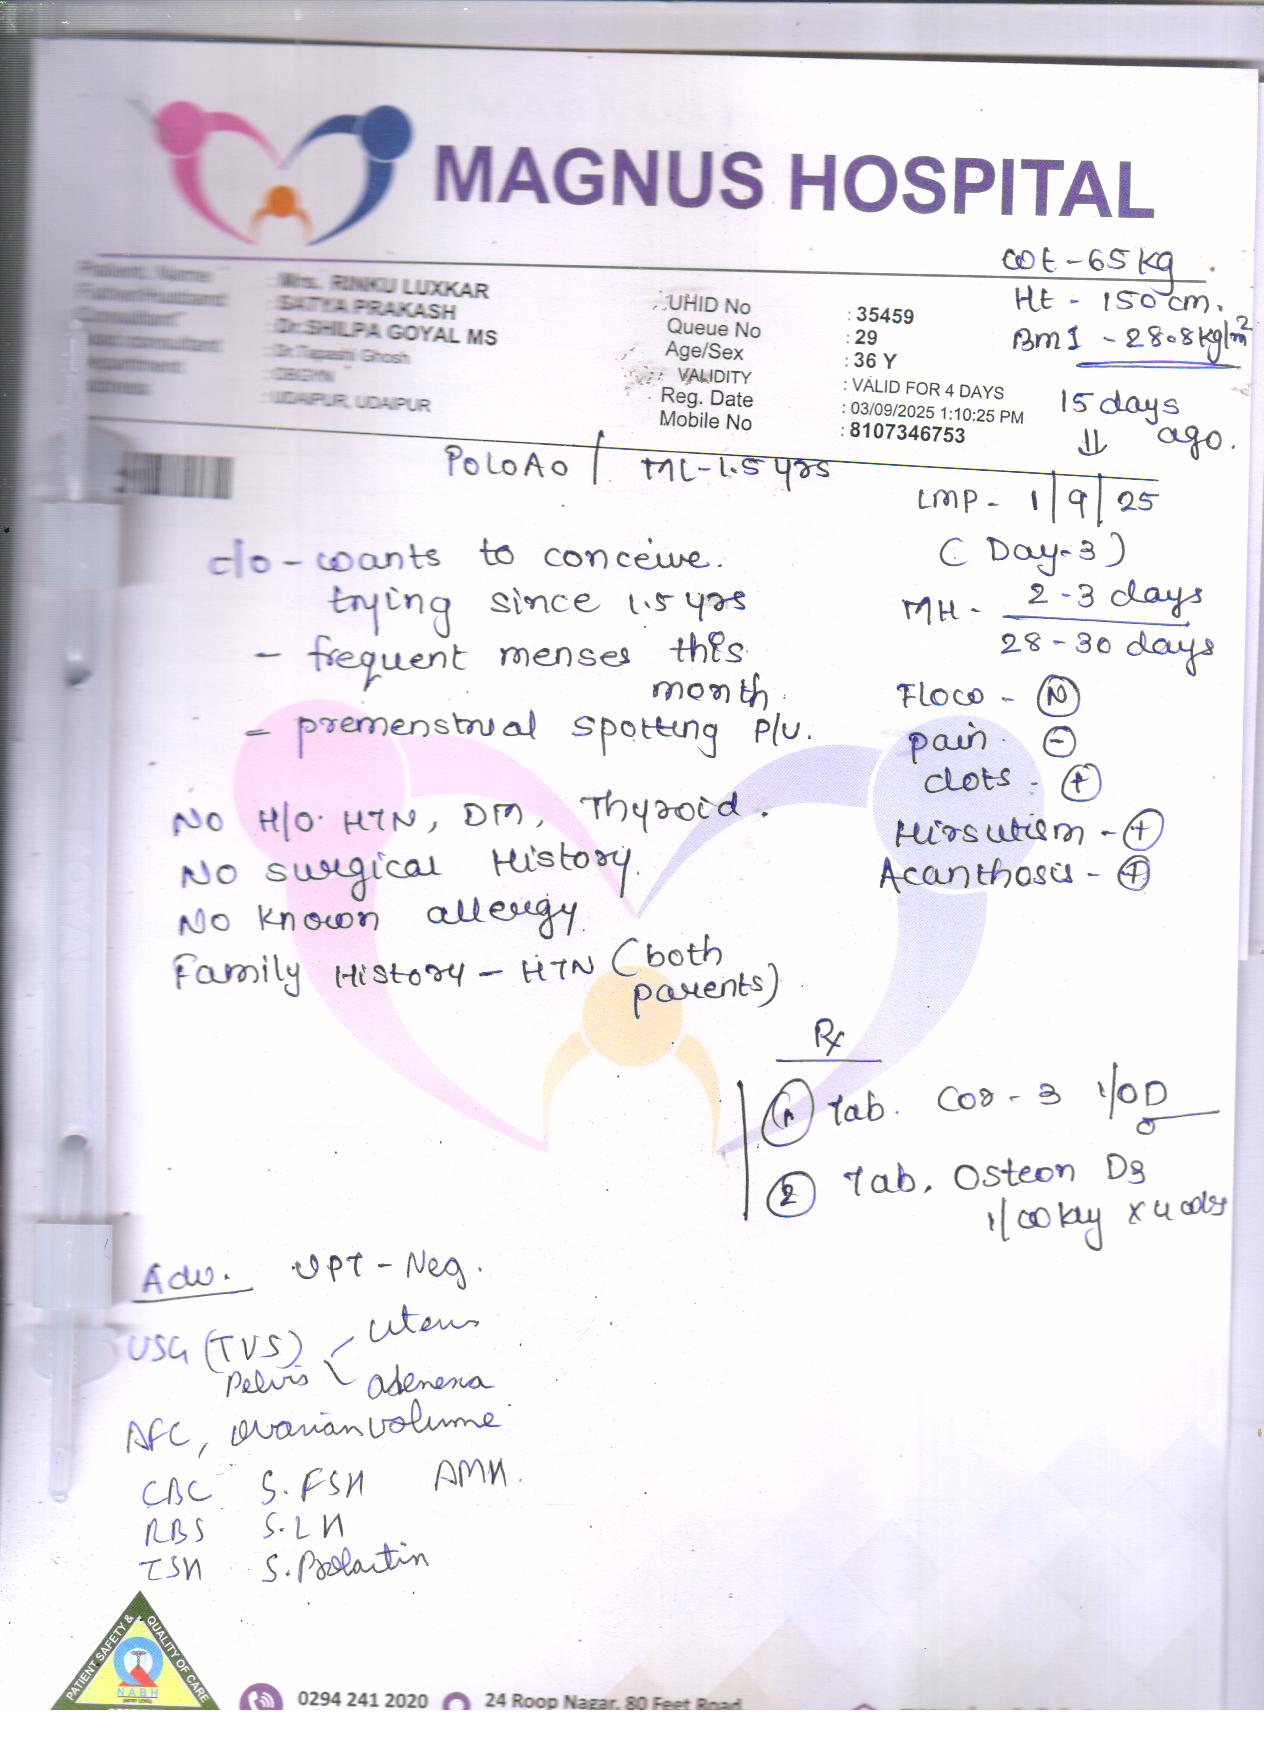 MAGNUS HOSPITAL
wt - 65 kg
Ht - 150 cm.
BMI - 28.8 kg/m²
Patient Name : Mrs. RINKU LUXKAR
Father/Husband : SATYA PRAKASH
Consultant : Dr.SHILPA GOYAL MS
: Dr.Tapashi Ghosh
: OBGYN
: UDAIPUR, UDAIPUR
UHID No : 35459
Queue No : 29
Age/Sex : 36 Y
VALIDITY : VALID FOR 4 DAYS
Reg. Date : 03/09/2025 1:10:25 PM
Mobile No : 8107346753
15 days ago.
⇓
P0L0A0 / ML-1.5 yrs
LMP - 1/9/25
(Day-3)
MH - 2-3 days
28-30 days
Flow - (N)
pain (-)
clots - (+)
Hirsutism - (+)
Acanthosis - (+)
c/o - wants to conceive.
trying since 1.5 yrs
- frequent menses this
month.
- premenstrual spotting P/V.
No H/O HTN, DM, Thyroid.
No surgical History.
No known allergy.
Family History - HTN (both
parents)
Rx
1 Tab. Cos - 3 1/OD
2 Tab. Osteon D3
1/wkly x 4
Adv. UPT - Neg.
USG (TVS) Uterus
Pelvis adenexa
AFC, ovarian volume
CBC S. FSH AMH.
RBS S. LH
TSH S. Prolactin
PATIENT SAFETY & QUALITY OF CARE
NABH
0294 241 2020
24 Roop Nagar, 80 Feet Road